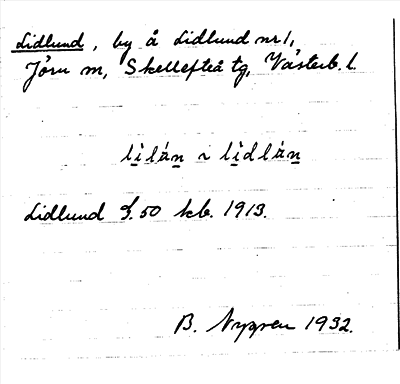 Lidlund, by å Lidlund nr 1,
Jörn m, Skellefteå tg, Västerb. l.
lilán ~ lidlán
Lidlund J. 50 kb. 1913.
B. Nygren 1932.